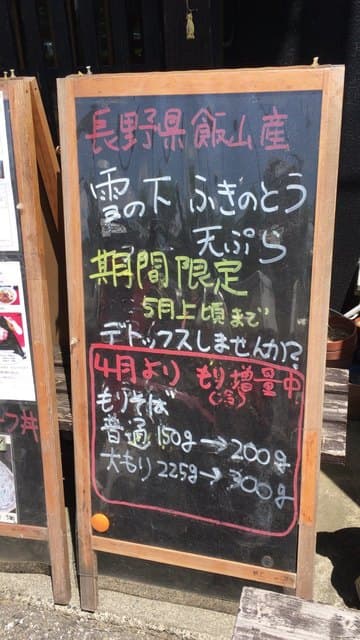 長野県飯山産
雪の下 ふきのとう
天ぷら
期間限定
5月上頃まで
デトックスしませんか?
4月より もり増量中
もりそば
普通150g→200g
大もり225g→300g